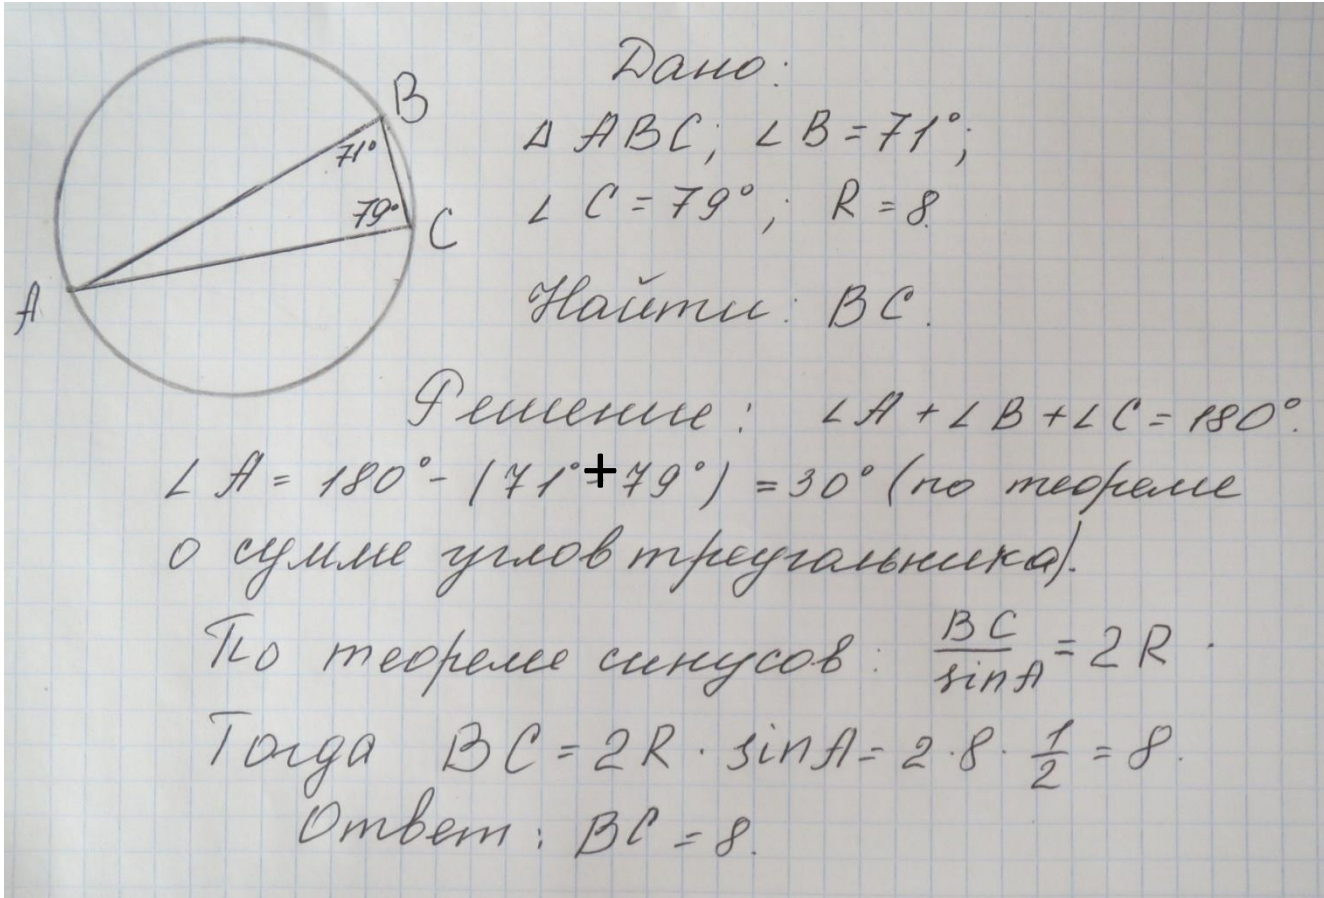 B
71°
79°
C
A
Дано:
Δ ABC; ∠B = 71°;
∠ C = 79°; R = 8.
Найти: BC.
Решение: ∠A + ∠B + ∠C = 180°.
∠A = 180° - (71° + 79°) = 30° (по теореме
о сумме углов треугольника).
По теореме синусов: BC/sinA = 2R.
Тогда BC = 2R · sinA = 2 · 8 · 1/2 = 8.
Ответ: BC = 8.